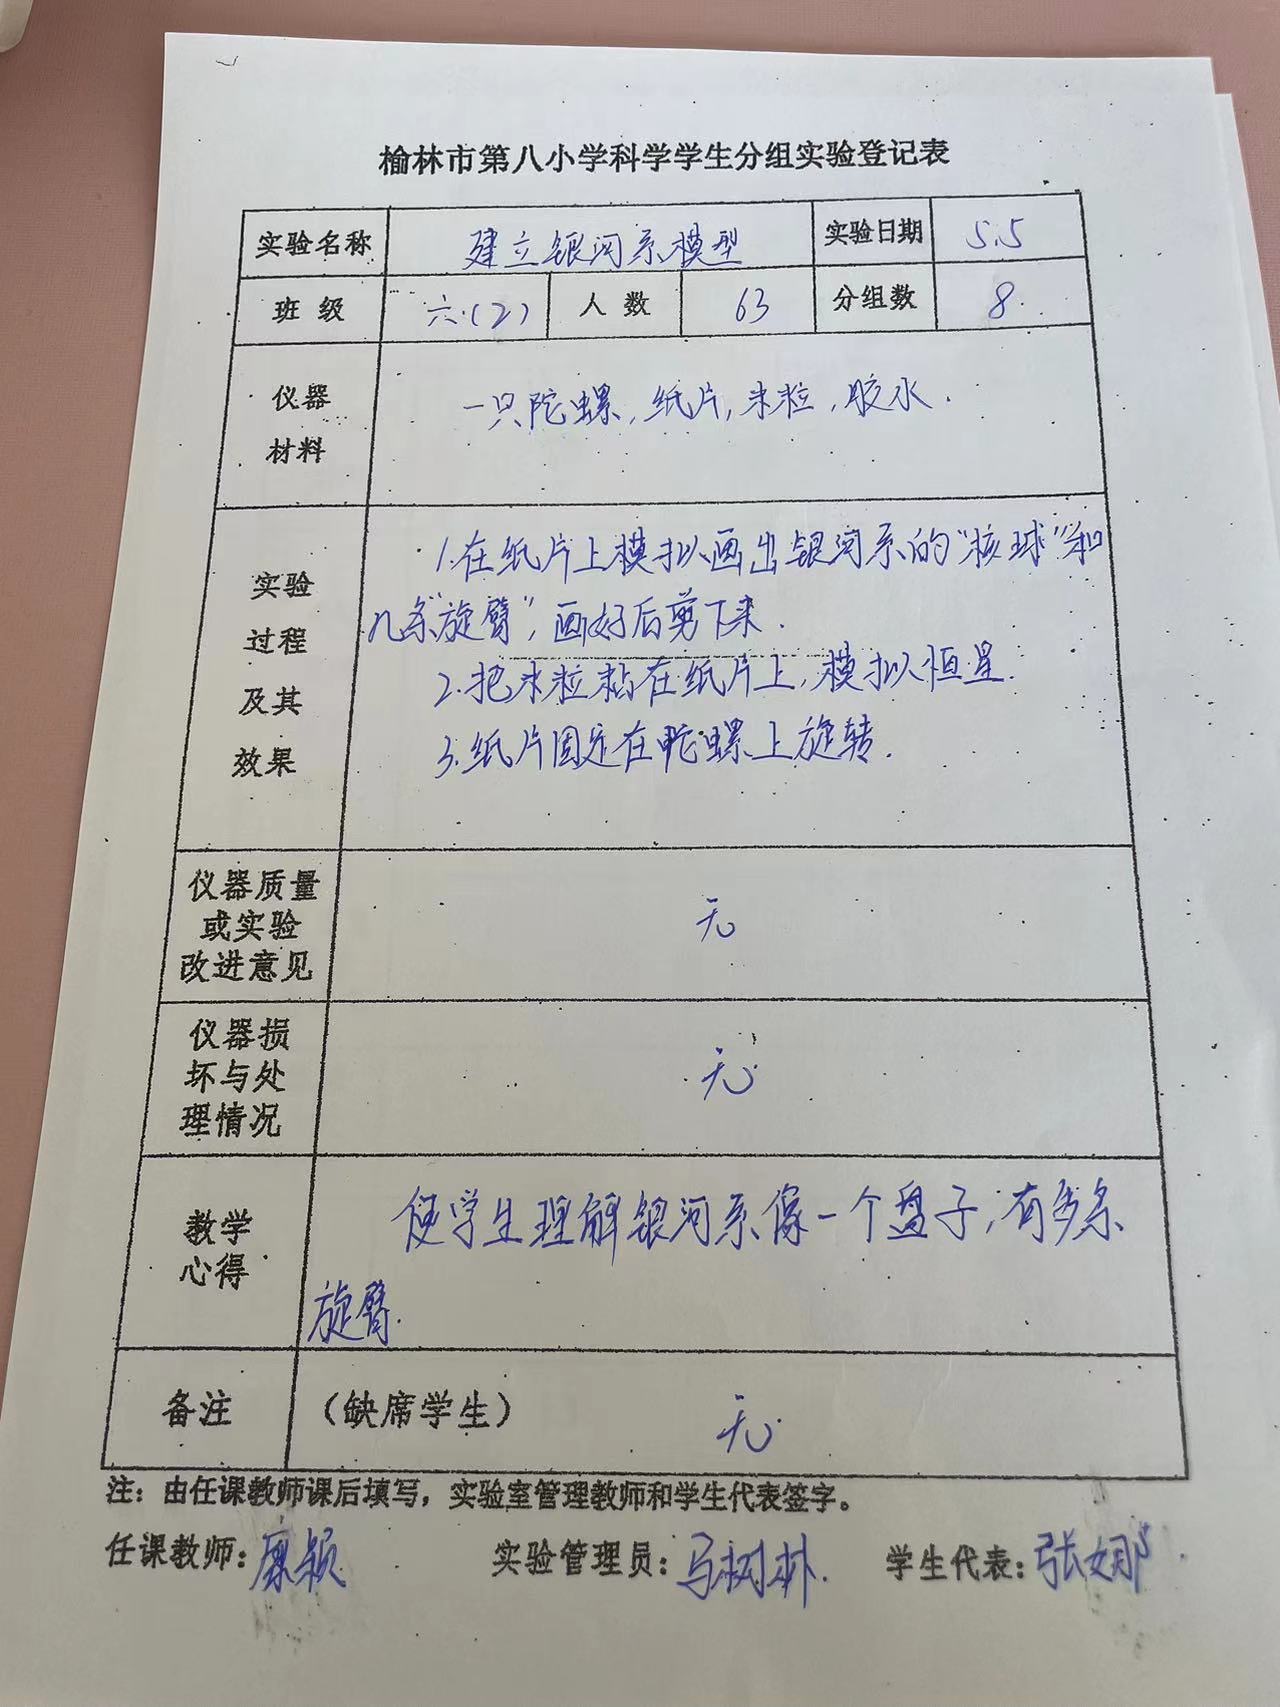 榆林市第八小学科学学生分组实验登记表
实验名称 建立银河系模型 实验日期 5.5
班级 六.(2) 人数 63 分组数 8.
仪器
材料
一只陀螺,纸片,米粒,胶水.
实验
过程
及其
效果
1.在纸片上模拟画出银河系的“核球”和
几条“旋臂”,画好后剪下来.
2.把米粒粘在纸片上,模拟恒星.
3.纸片固定在陀螺上旋转.
仪器质量
或实验
改进意见
无
仪器损
坏与处
理情况
无
教学
心得
使学生理解银河系像一个盘子,有多条
旋臂.
备注 (缺席学生) 无
注:由任课教师课后填写,实验室管理教师和学生代表签字。
任课教师:康颖 实验管理员:马树林. 学生代表:张娜.